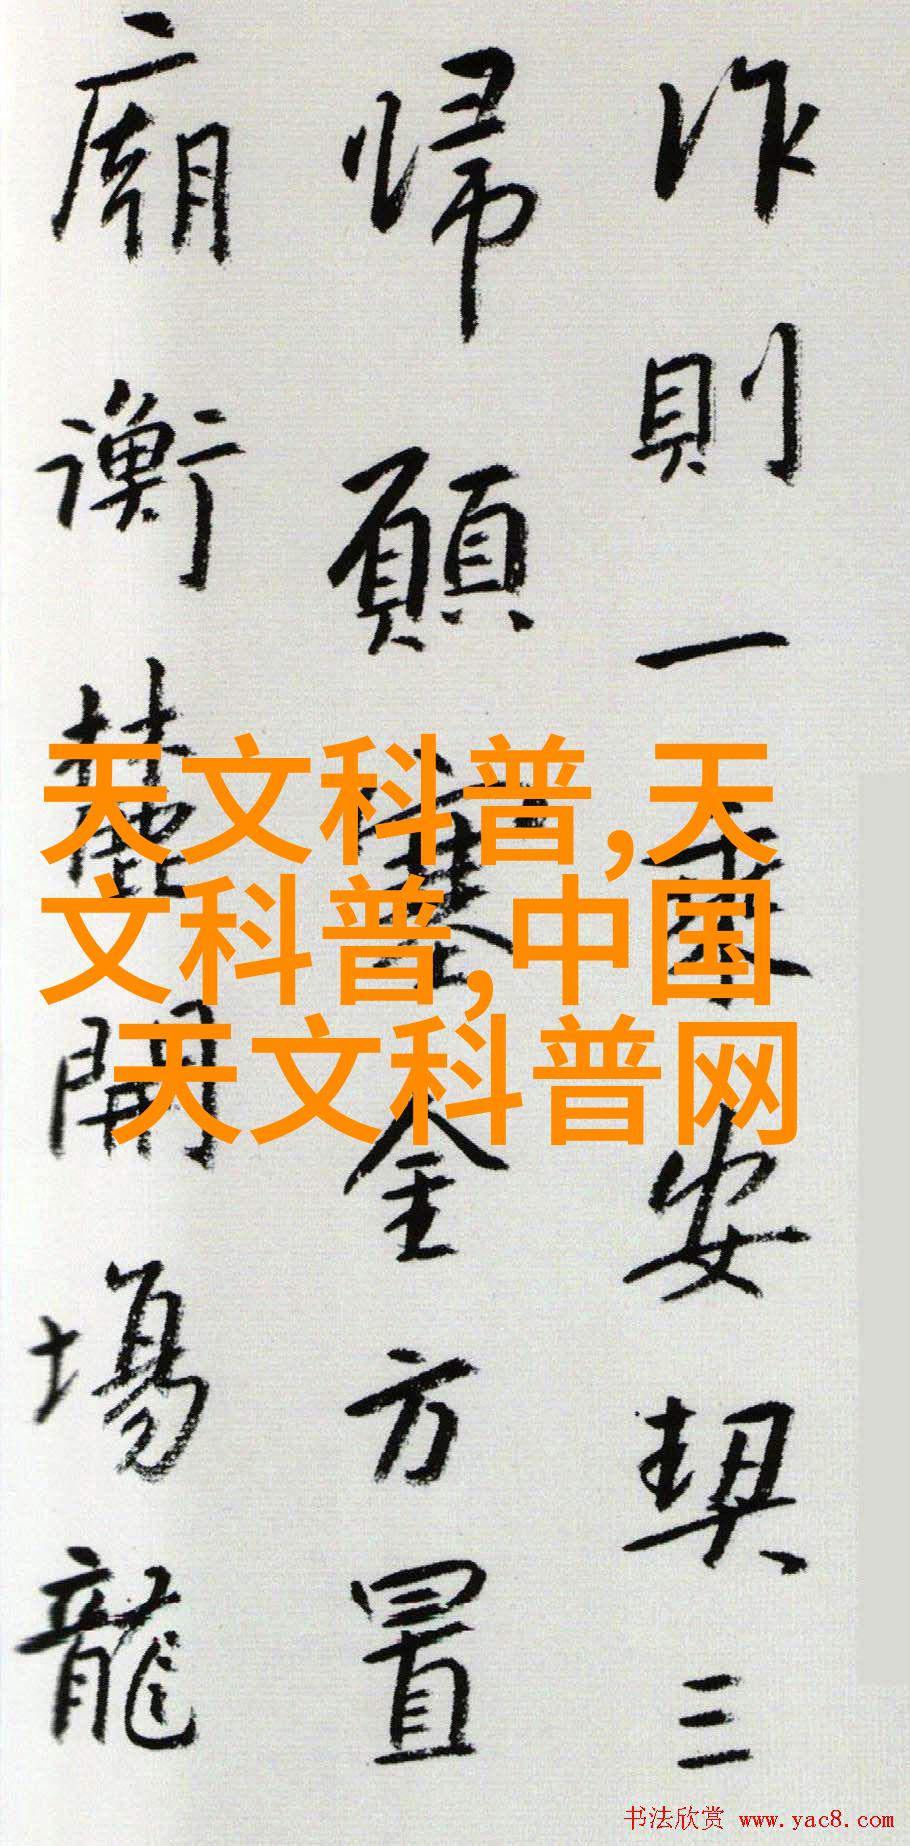 作則一乘安契三
歸願塞金方置
廟衡麓開場龍
天文科普,天
文科普,中国
天文科普网
书法欣赏 www.yac8.com